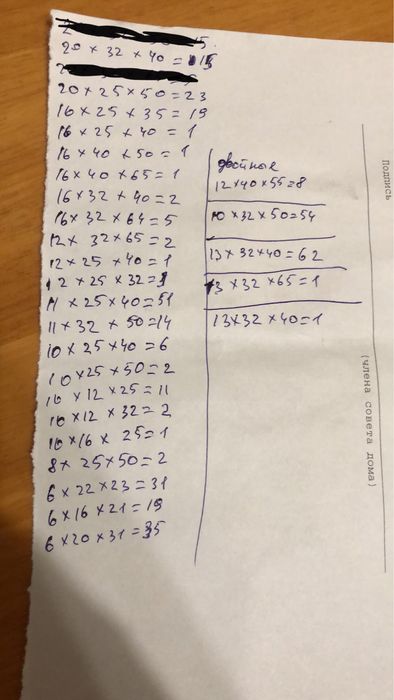 20 × 32 × 40 = 15
20 × 25 × 50 = 23
16 × 25 × 35 = 19
16 × 25 × 40 = 1
16 × 40 × 50 = 1
16 × 40 × 65 = 1
16 × 32 × 40 = 2
16 × 32 × 64 = 5
12 × 32 × 65 = 2
12 × 25 × 40 = 1
12 × 25 × 32 = 1
11 × 25 × 40 = 51
11 × 32 × 50 = 14
10 × 25 × 40 = 6
10 × 25 × 50 = 2
10 × 12 × 25 = 11
10 × 12 × 32 = 2
10 × 16 × 25 = 1
8 × 25 × 50 = 2
6 × 22 × 23 = 31
6 × 16 × 21 = 19
6 × 20 × 31 = 35
двойные
12 × 40 × 55 = 8
10 × 32 × 50 = 54
13 × 32 × 40 = 62
13 × 32 × 65 = 1
13 × 32 × 40 = 1
Подпись
(члена совета дома)